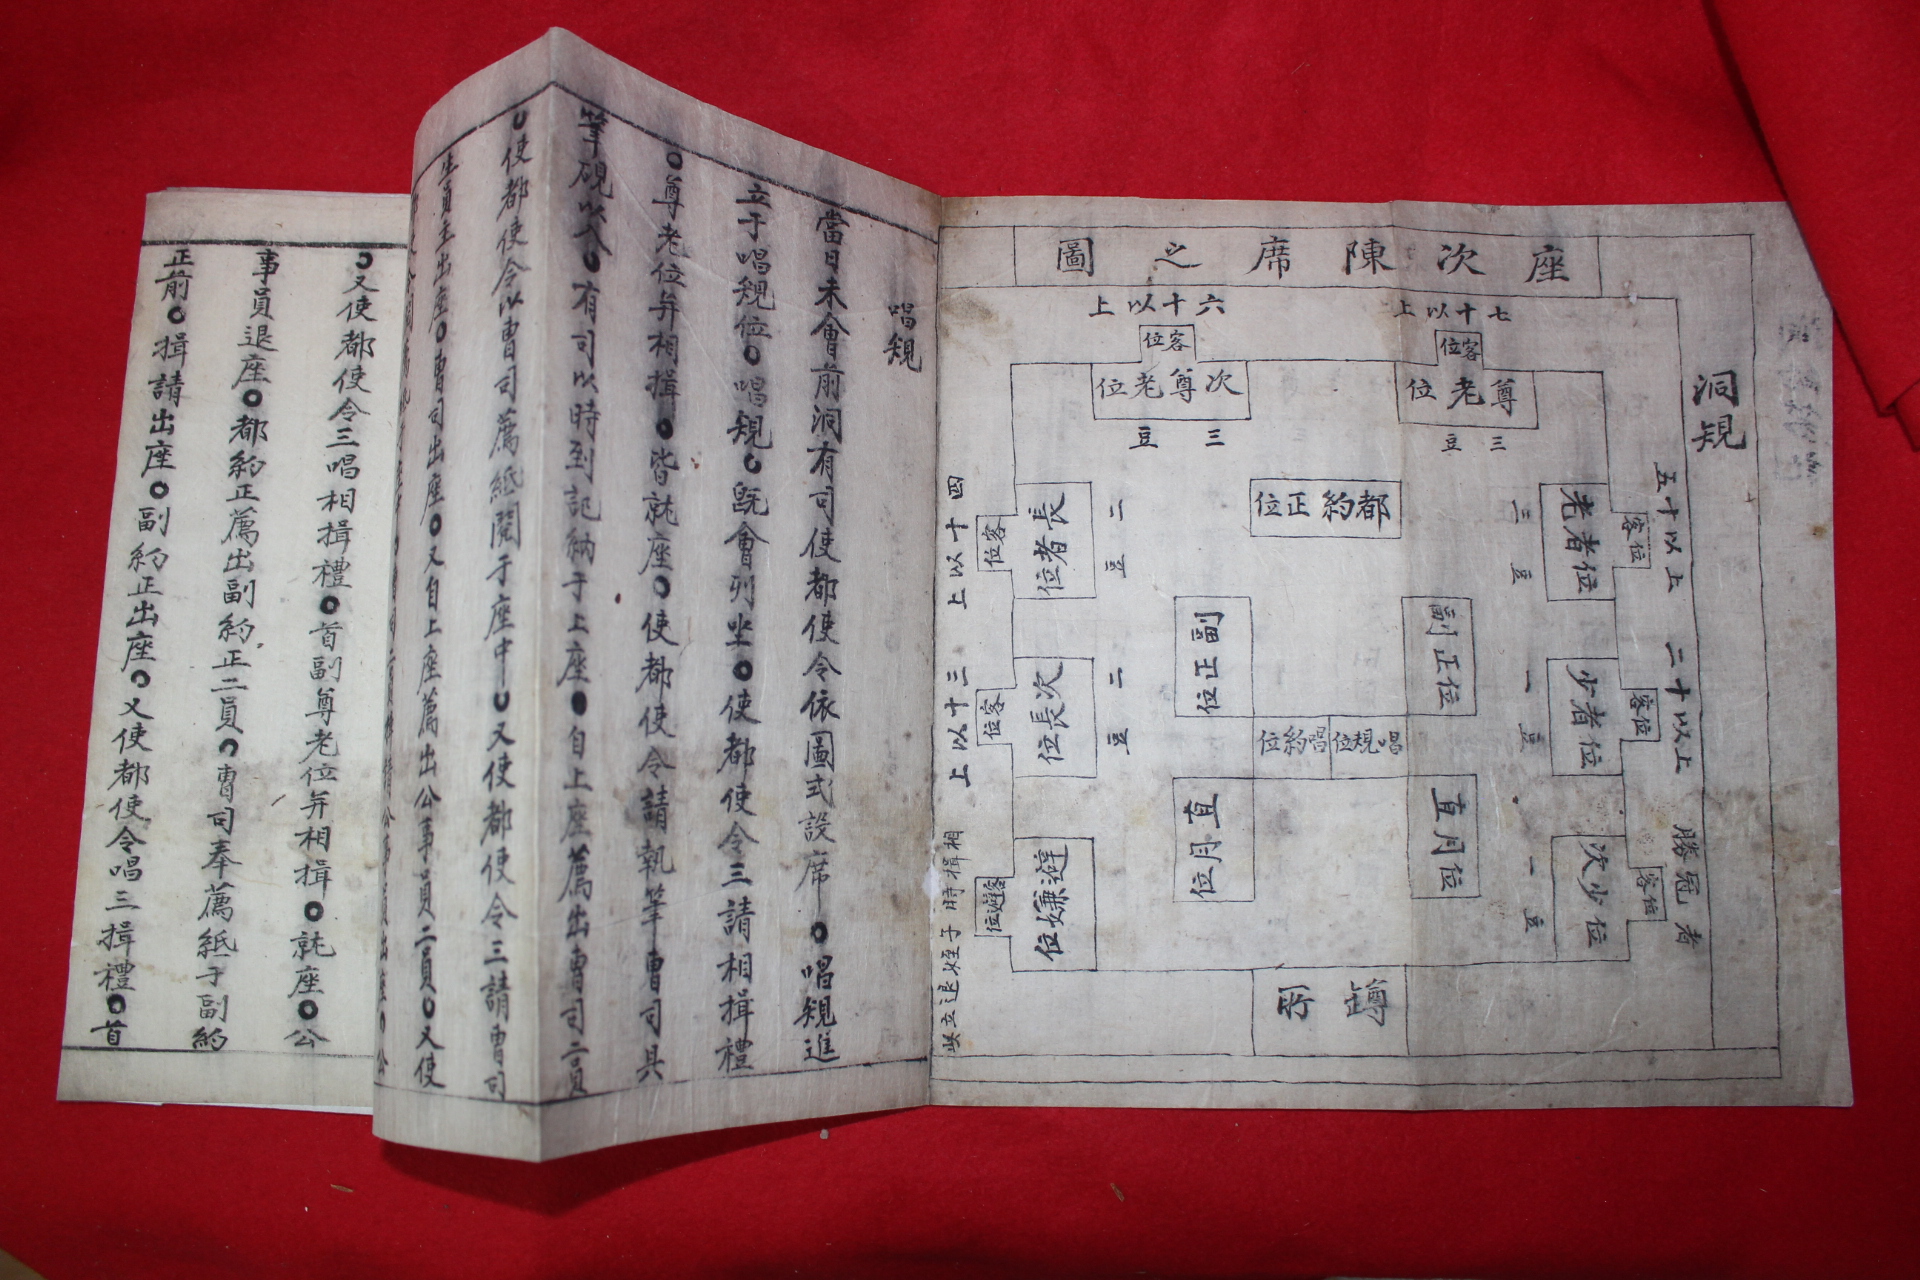 洞䂓
座次陳席之圖
七十以上
客位
尊老位
三豆
六十以上
客位
次尊老位
三豆
五十以上
客位
老者位
三豆
二十以上
客位
少者位
一豆
勝冠者
客位
次少位
一豆
四十以上
客位
長者位
二豆
三十以上
客位
次長位
二豆
客避位
避嫌位
相揖時子姪退立
都約正位
副正位
副正位
唱䂓位
唱約位
直月位
直月位
罇所
唱䂓
當日未會前洞有司使都使令依圖式設席○唱䂓進
立于唱䂓位○唱䂓○旣會列坐○使都使令三請相揖禮
○尊老位并相揖○皆就座○使都使令請執筆曺司具
筆硯以入○有司以時到記納于上座○自上座薦出曺司二員
○使都使令以曺司薦紙閱于座中○又使都使令三請曺司
生員主出座○曺司出座○又自上座薦出公事員二員○又使
○又使都使令三唱相揖禮○首副尊老位并相揖○就座○公
事員退座○都約正薦出副約正二員○曺司奉薦紙于副約
正前○揖請出座○副約正出座○又使都使令唱三揖禮○首